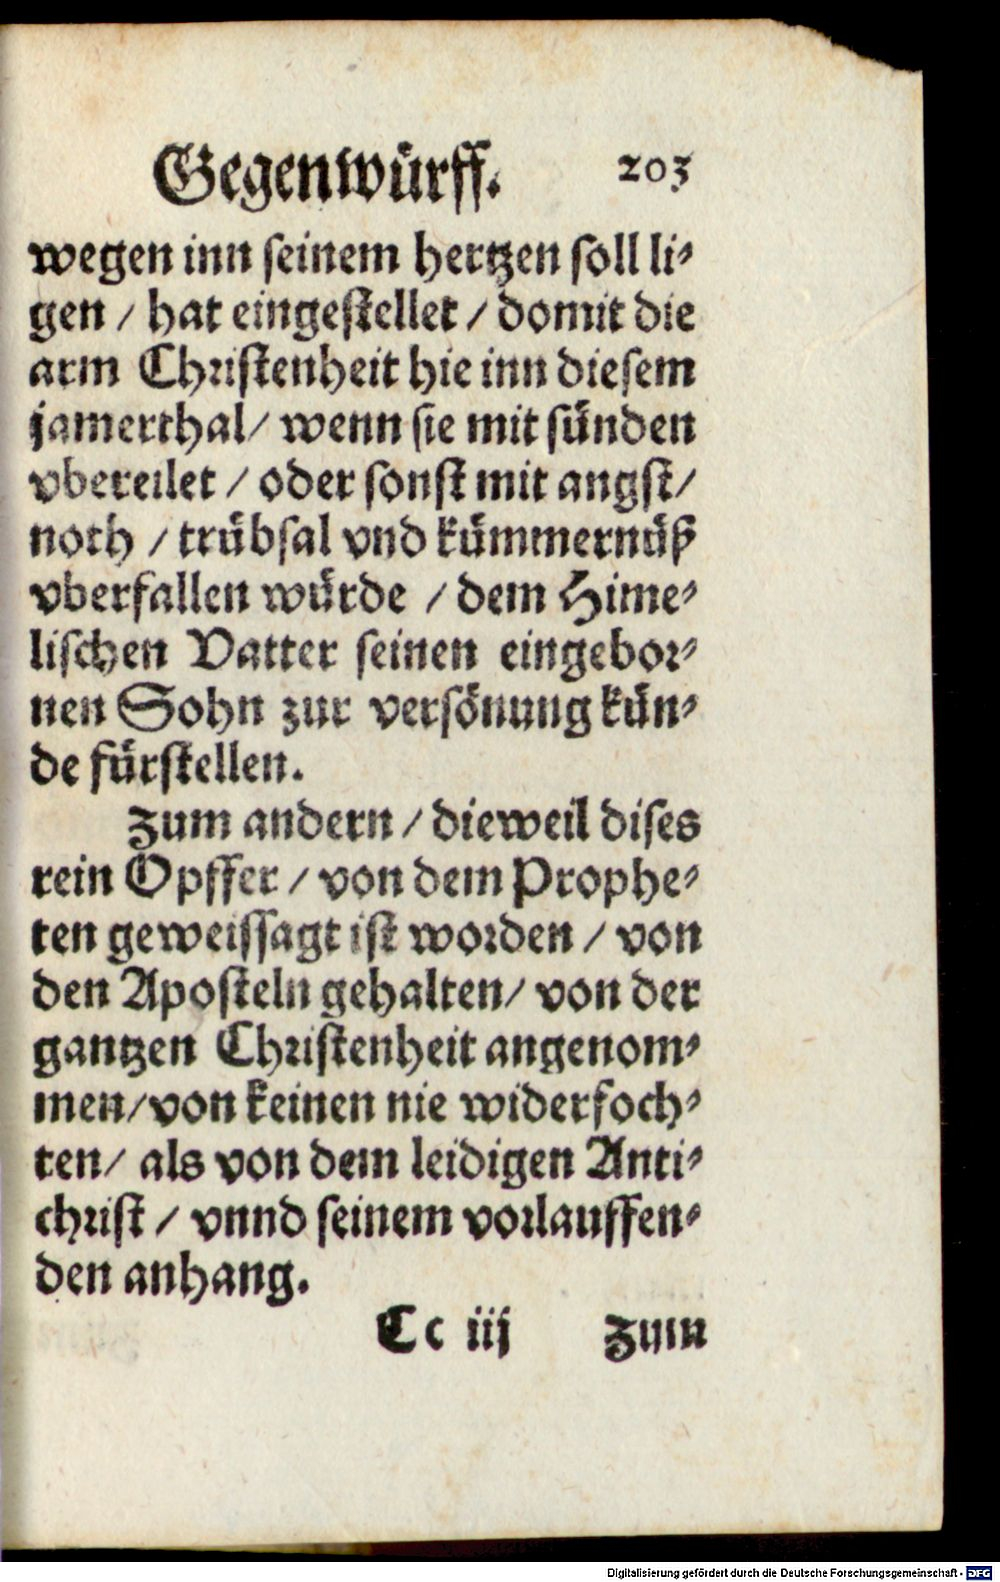 Gegenwürff. 203
wegen inn seinem hertzen soll li-
gen / hat eingestellet / domit die
arm Christenheit hie inn diesem
jamerthal / wenn sie mit sünden
vbereilet / oder sonst mit angst /
noth / trübsal vnd kümmernüß
vberfallen würde / dem Hime-
lischen Vatter seinen eingebor-
nen Sohn zur versönung kün-
de fürstellen.
Zum andern / dieweil dises
rein Opffer / von dem Prophe-
ten geweissagt ist worden / von
den Aposteln gehalten / von der
gantzen Christenheit angenom-
men / von keinen nie widerfoch-
ten / als von dem leidigen Anti-
christ / vnnd seinem vorlauffen-
den anhang.
Cc iij Zum
Digitalisierung gefördert durch die Deutsche Forschungsgemeinschaft - DFG